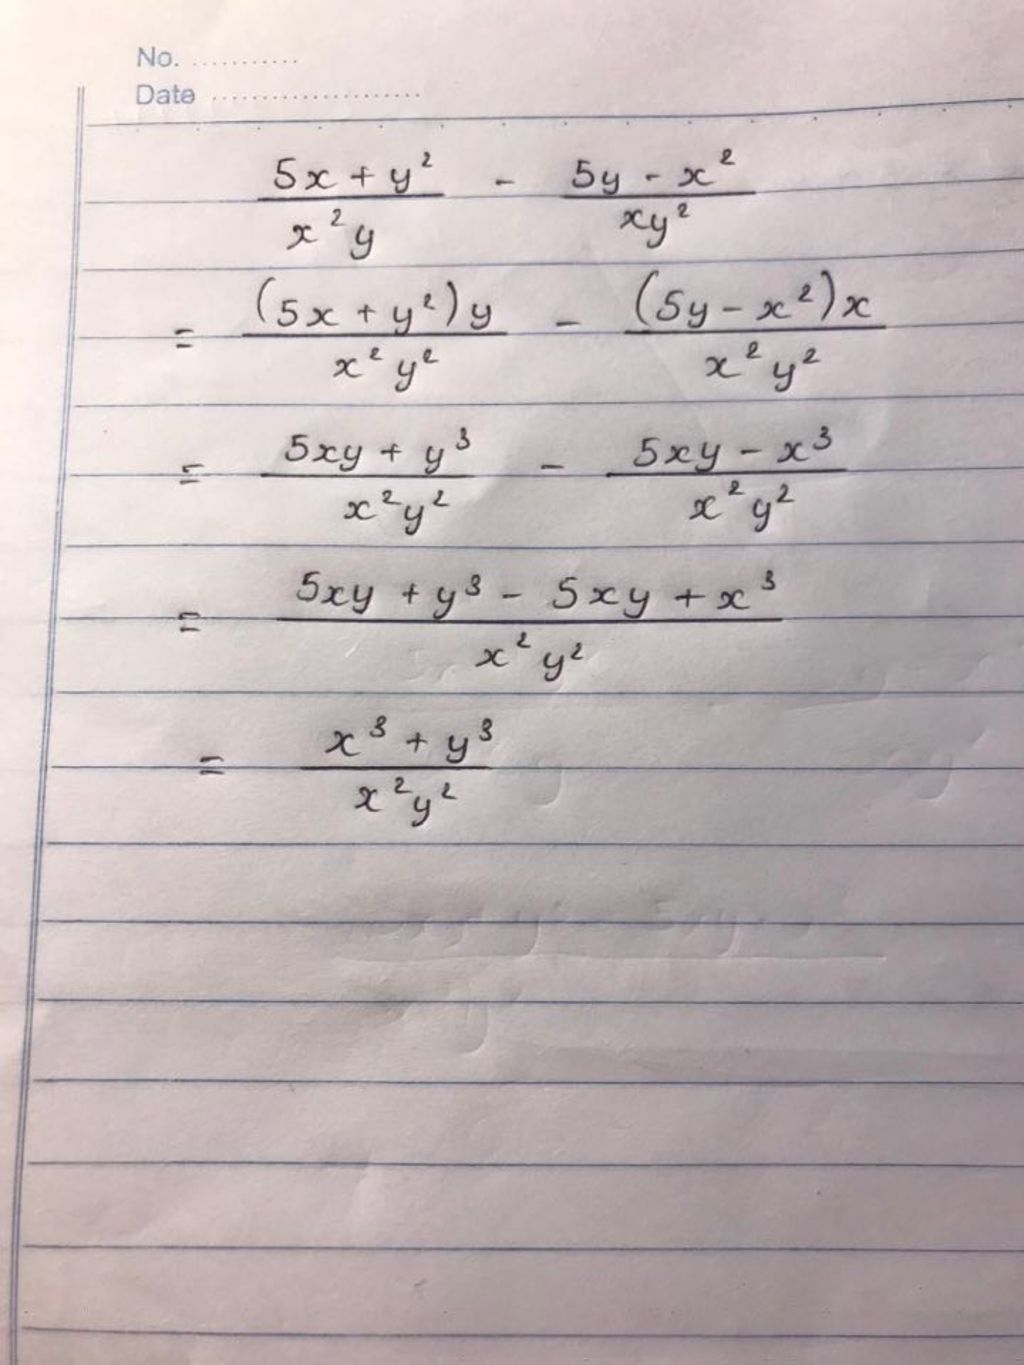 No. ...........
Date .....................
(5x + y²)/(x²y) - (5y - x²)/(xy²)
= ((5x + y²)y)/(x²y²) - ((5y - x²)x)/(x²y²)
= (5xy + y³)/(x²y²) - (5xy - x³)/(x²y²)
= (5xy + y³ - 5xy + x³)/(x²y²)
= (x³ + y³)/(x²y²)